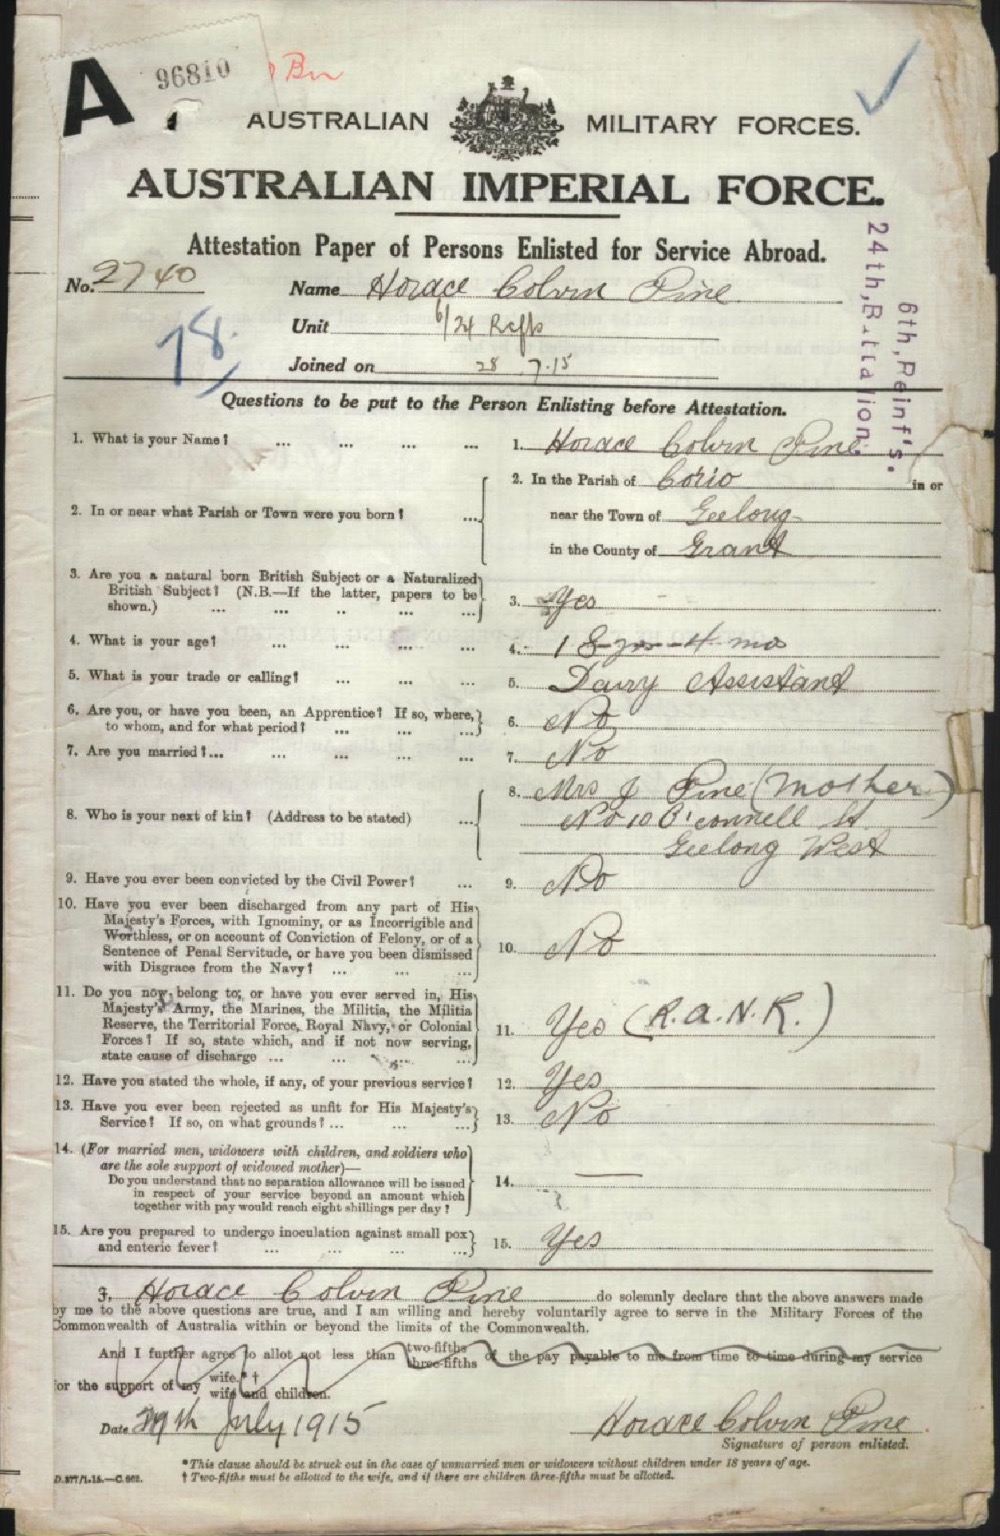 A 96810
AUSTRALIAN MILITARY FORCES.
AUSTRALIAN IMPERIAL FORCE.
Attestation Paper of Persons Enlisted for Service Abroad.
No. 2740 Name Horace Colvin Pine
78. Unit 6/24 Refts
Joined on 28.7.15
24th, Battalion
6th, Reinf's.
Questions to be put to the Person Enlisting before Attestation.
1. What is your Name? ... ... ... ... 1. Horace Colvin Pine
2. In or near what Parish or Town were you born? ... 2. In the Parish of Corio in or
near the Town of Geelong
in the County of Grant
3. Are you a natural born British Subject or a Naturalized
British Subject? (N.B.—If the latter, papers to be
shown.) ... ... ... ... 3. Yes
4. What is your age? ... ... ... ... 4. 18 yrs 4 mo
5. What is your trade or calling? ... ... ... 5. Dairy Assistant
6. Are you, or have you been, an Apprentice? If so, where,
to whom, and for what period? ... ... ... 6. No
7. Are you married? ... ... ... ... ... 7. No
8. Who is your next of kin? (Address to be stated) ... 8. Mrs J Pine (mother)
No 10 O'Connell St
Geelong West
9. Have you ever been convicted by the Civil Power? ... 9. No
10. Have you ever been discharged from any part of His
Majesty's Forces, with Ignominy, or as Incorrigible and
Worthless, or on account of Conviction of Felony, or of a
Sentence of Penal Servitude, or have you been dismissed
with Disgrace from the Navy? ... ... ... 10. No
11. Do you now belong to, or have you ever served in, His
Majesty's Army, the Marines, the Militia, the Militia
Reserve, the Territorial Force, Royal Navy, or Colonial
Forces? If so, state which, and if not now serving,
state cause of discharge ... ... ... ... 11. Yes (R.A.N.R.)
12. Have you stated the whole, if any, of your previous service? 12. Yes
13. Have you ever been rejected as unfit for His Majesty's
Service? If so, on what grounds? ... ... ... 13. No
14. (For married men, widowers with children, and soldiers who
are the sole support of widowed mother)—
Do you understand that no separation allowance will be issued
in respect of your service beyond an amount which
together with pay would reach eight shillings per day? 14. —
15. Are you prepared to undergo inoculation against small pox
and enteric fever? ... ... ... ... 15. Yes
I, Horace Colvin Pine do solemnly declare that the above answers made
by me to the above questions are true, and I am willing and hereby voluntarily agree to serve in the Military Forces of the
Commonwealth of Australia within or beyond the limits of the Commonwealth.
And I further agree to allot not less than two-fifths three-fifths of the pay payable to me from time to time during my service
for the support of my wife.*† wife and children.
Date 29th July 1915 Horace Colvin Pine
Signature of person enlisted.
*This clause should be struck out in the case of unmarried men or widowers without children under 18 years of age.
D.577/1.15.—C.962. † Two-fifths must be allotted to the wife, and if there are children three-fifths must be allotted.